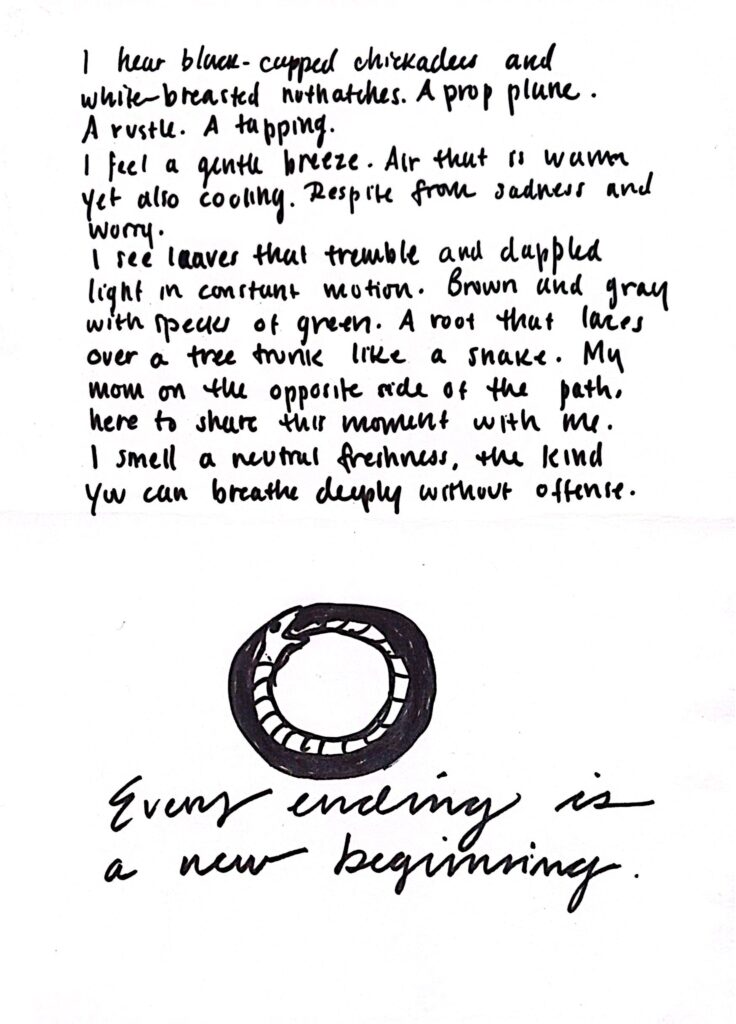 I hear black-capped chickadees and
white-breasted nuthatches. A prop plane.
A rustle. A tapping.
I feel a gentle breeze. Air that is warm
yet also cooling. Respite from sadness and
worry.
I see leaves that tremble and dappled
light in constant motion. Brown and gray
with specks of green. A root that laces
over a tree trunk like a snake. My
mom on the opposite side of the path,
here to share this moment with me.
I smell a neutral freshness, the kind
you can breathe deeply without offense.
Every ending is
a new beginning.